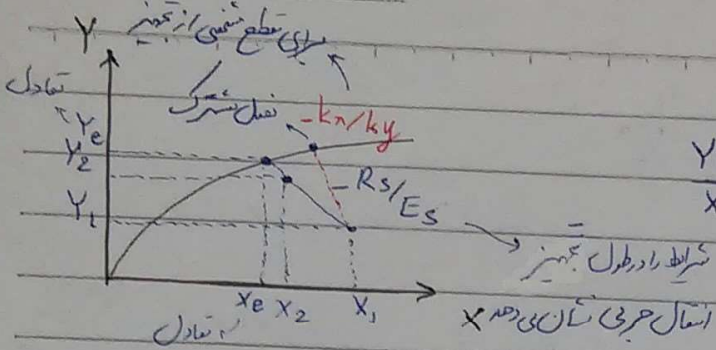 Y برای مقطع مشخصی از تجهیز
تعادل
Ye فصل مشترک -kx/ky
Y
Y2
X
-Rs/Es
Y1
شرایط را در طول تجهیز
انتقال جرمی نشان می دهد X
Xe X2 X1
تعادل